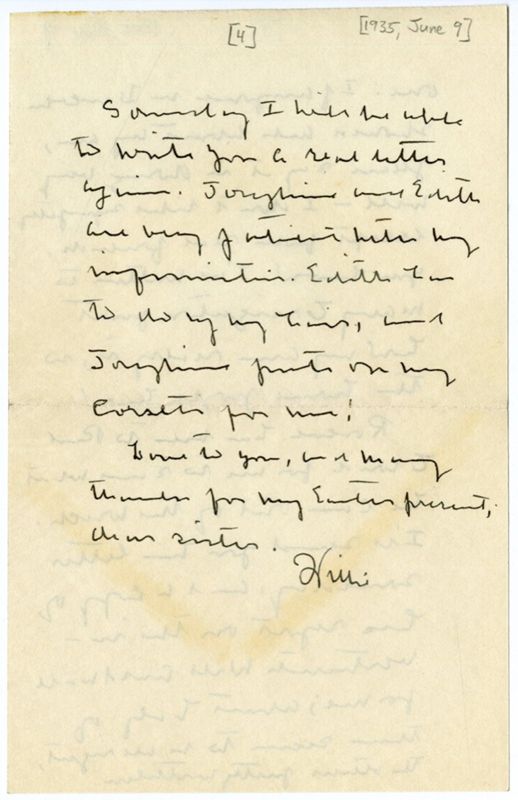 [4]
[1935, June 9]
Someday I will be able
to write you a real letter
again. Josephine and Edith
are very patient with my
infirmities. Edith has
to do up my hair, and
Josephine puts on my
corsets for me!
Love to you, and many
thanks for my Easter present,
dear sister.
Willie